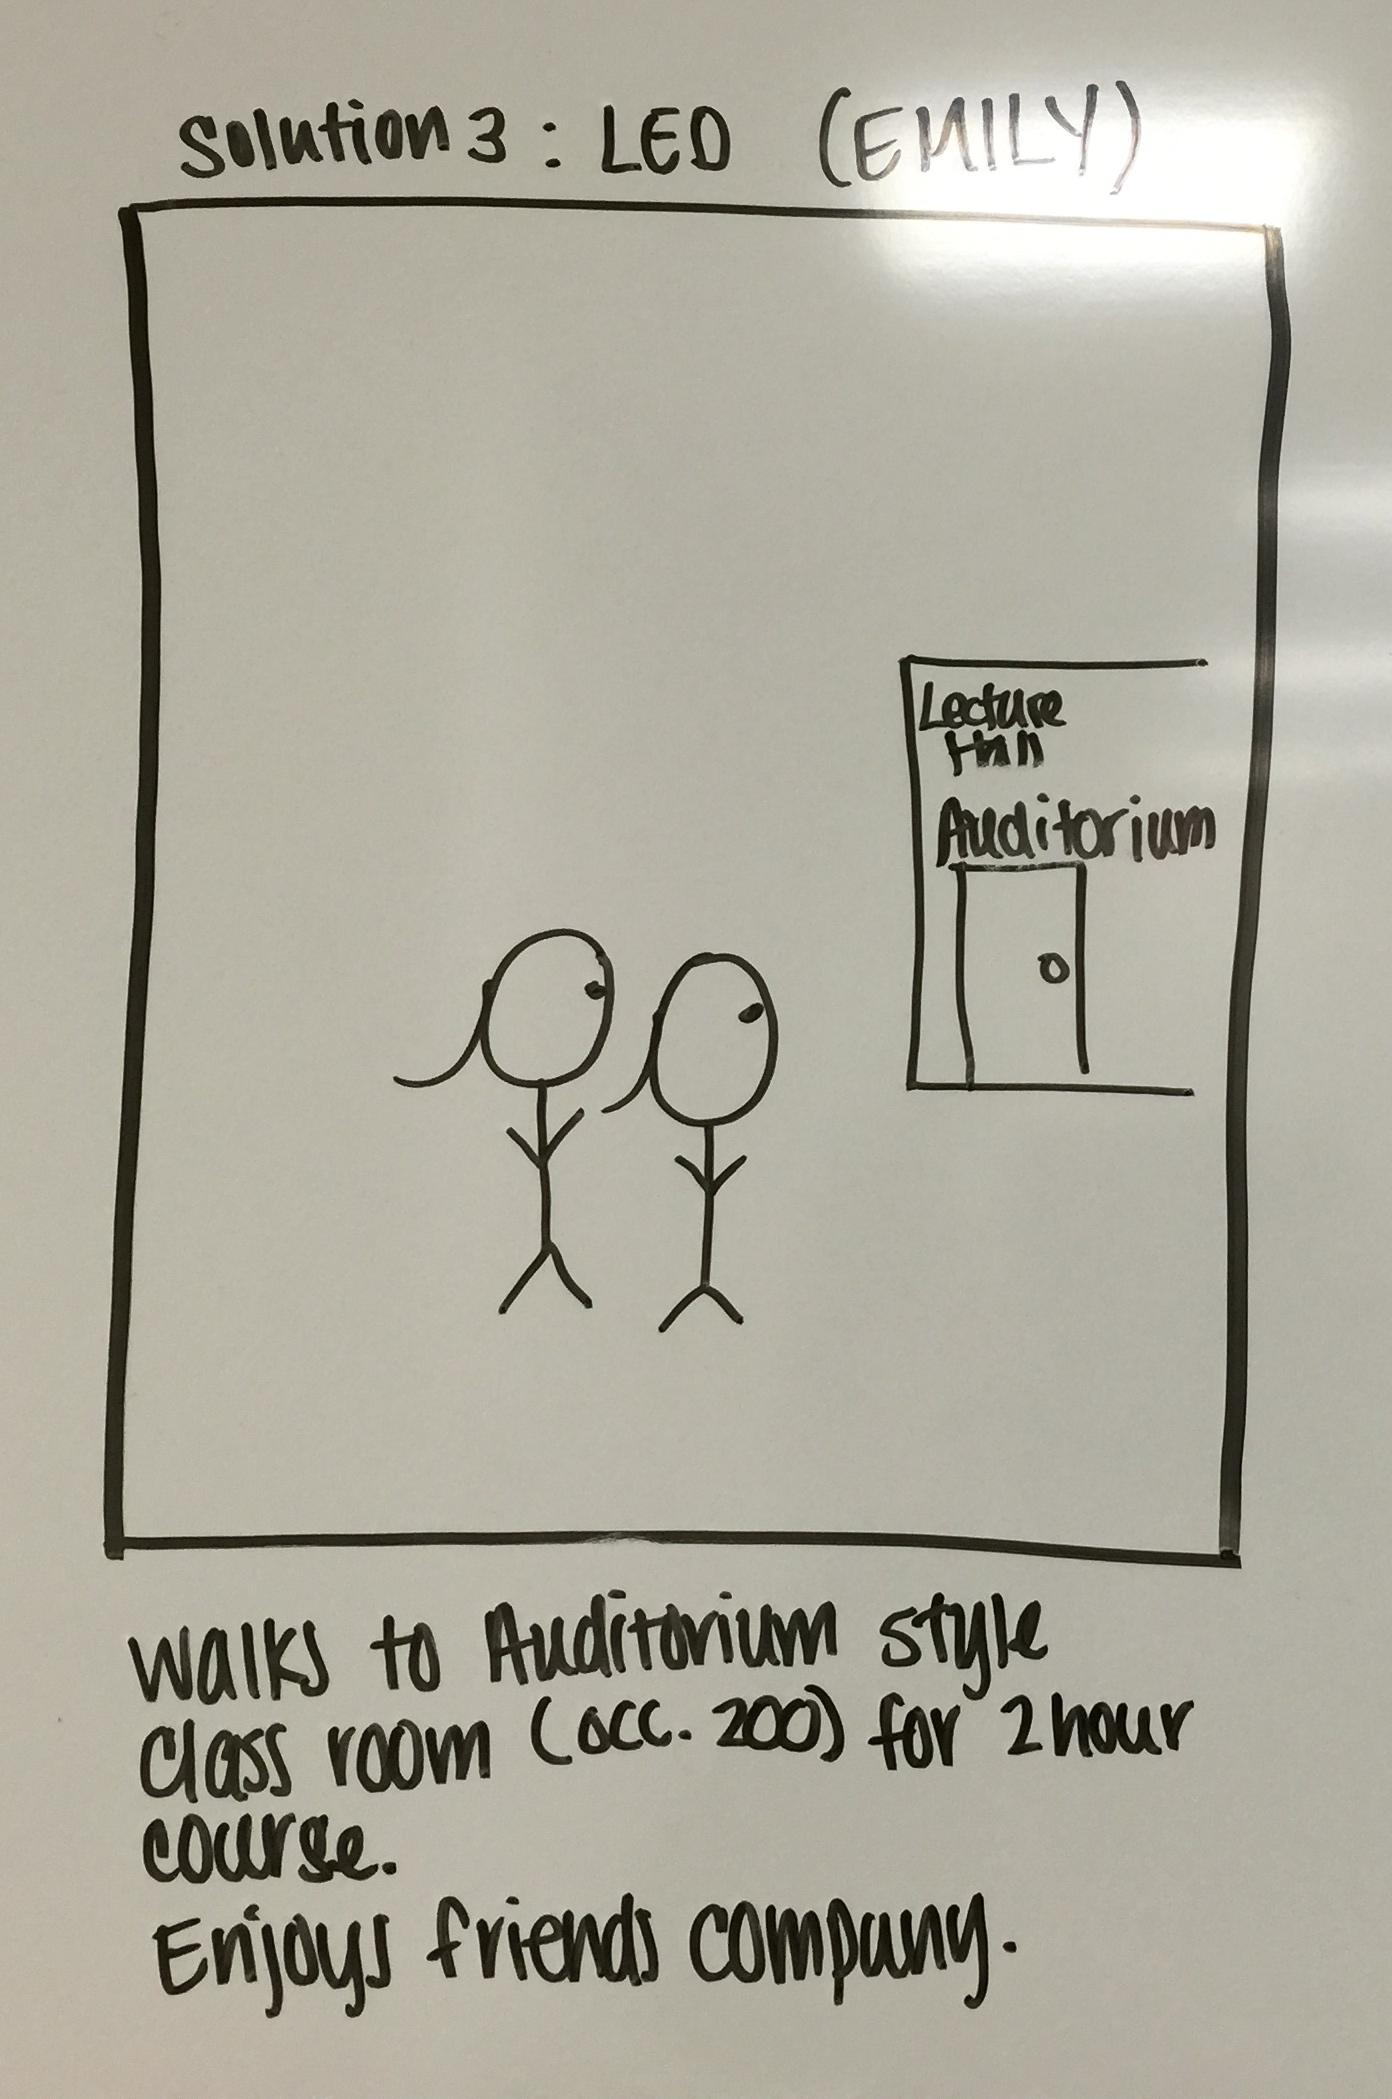 Solution 3 : LED (EMILY)
Lecture
Hall
Auditorium
Walks to Auditorium style
Class room (occ. 200) for 2 hour
course.
Enjoys friends company.